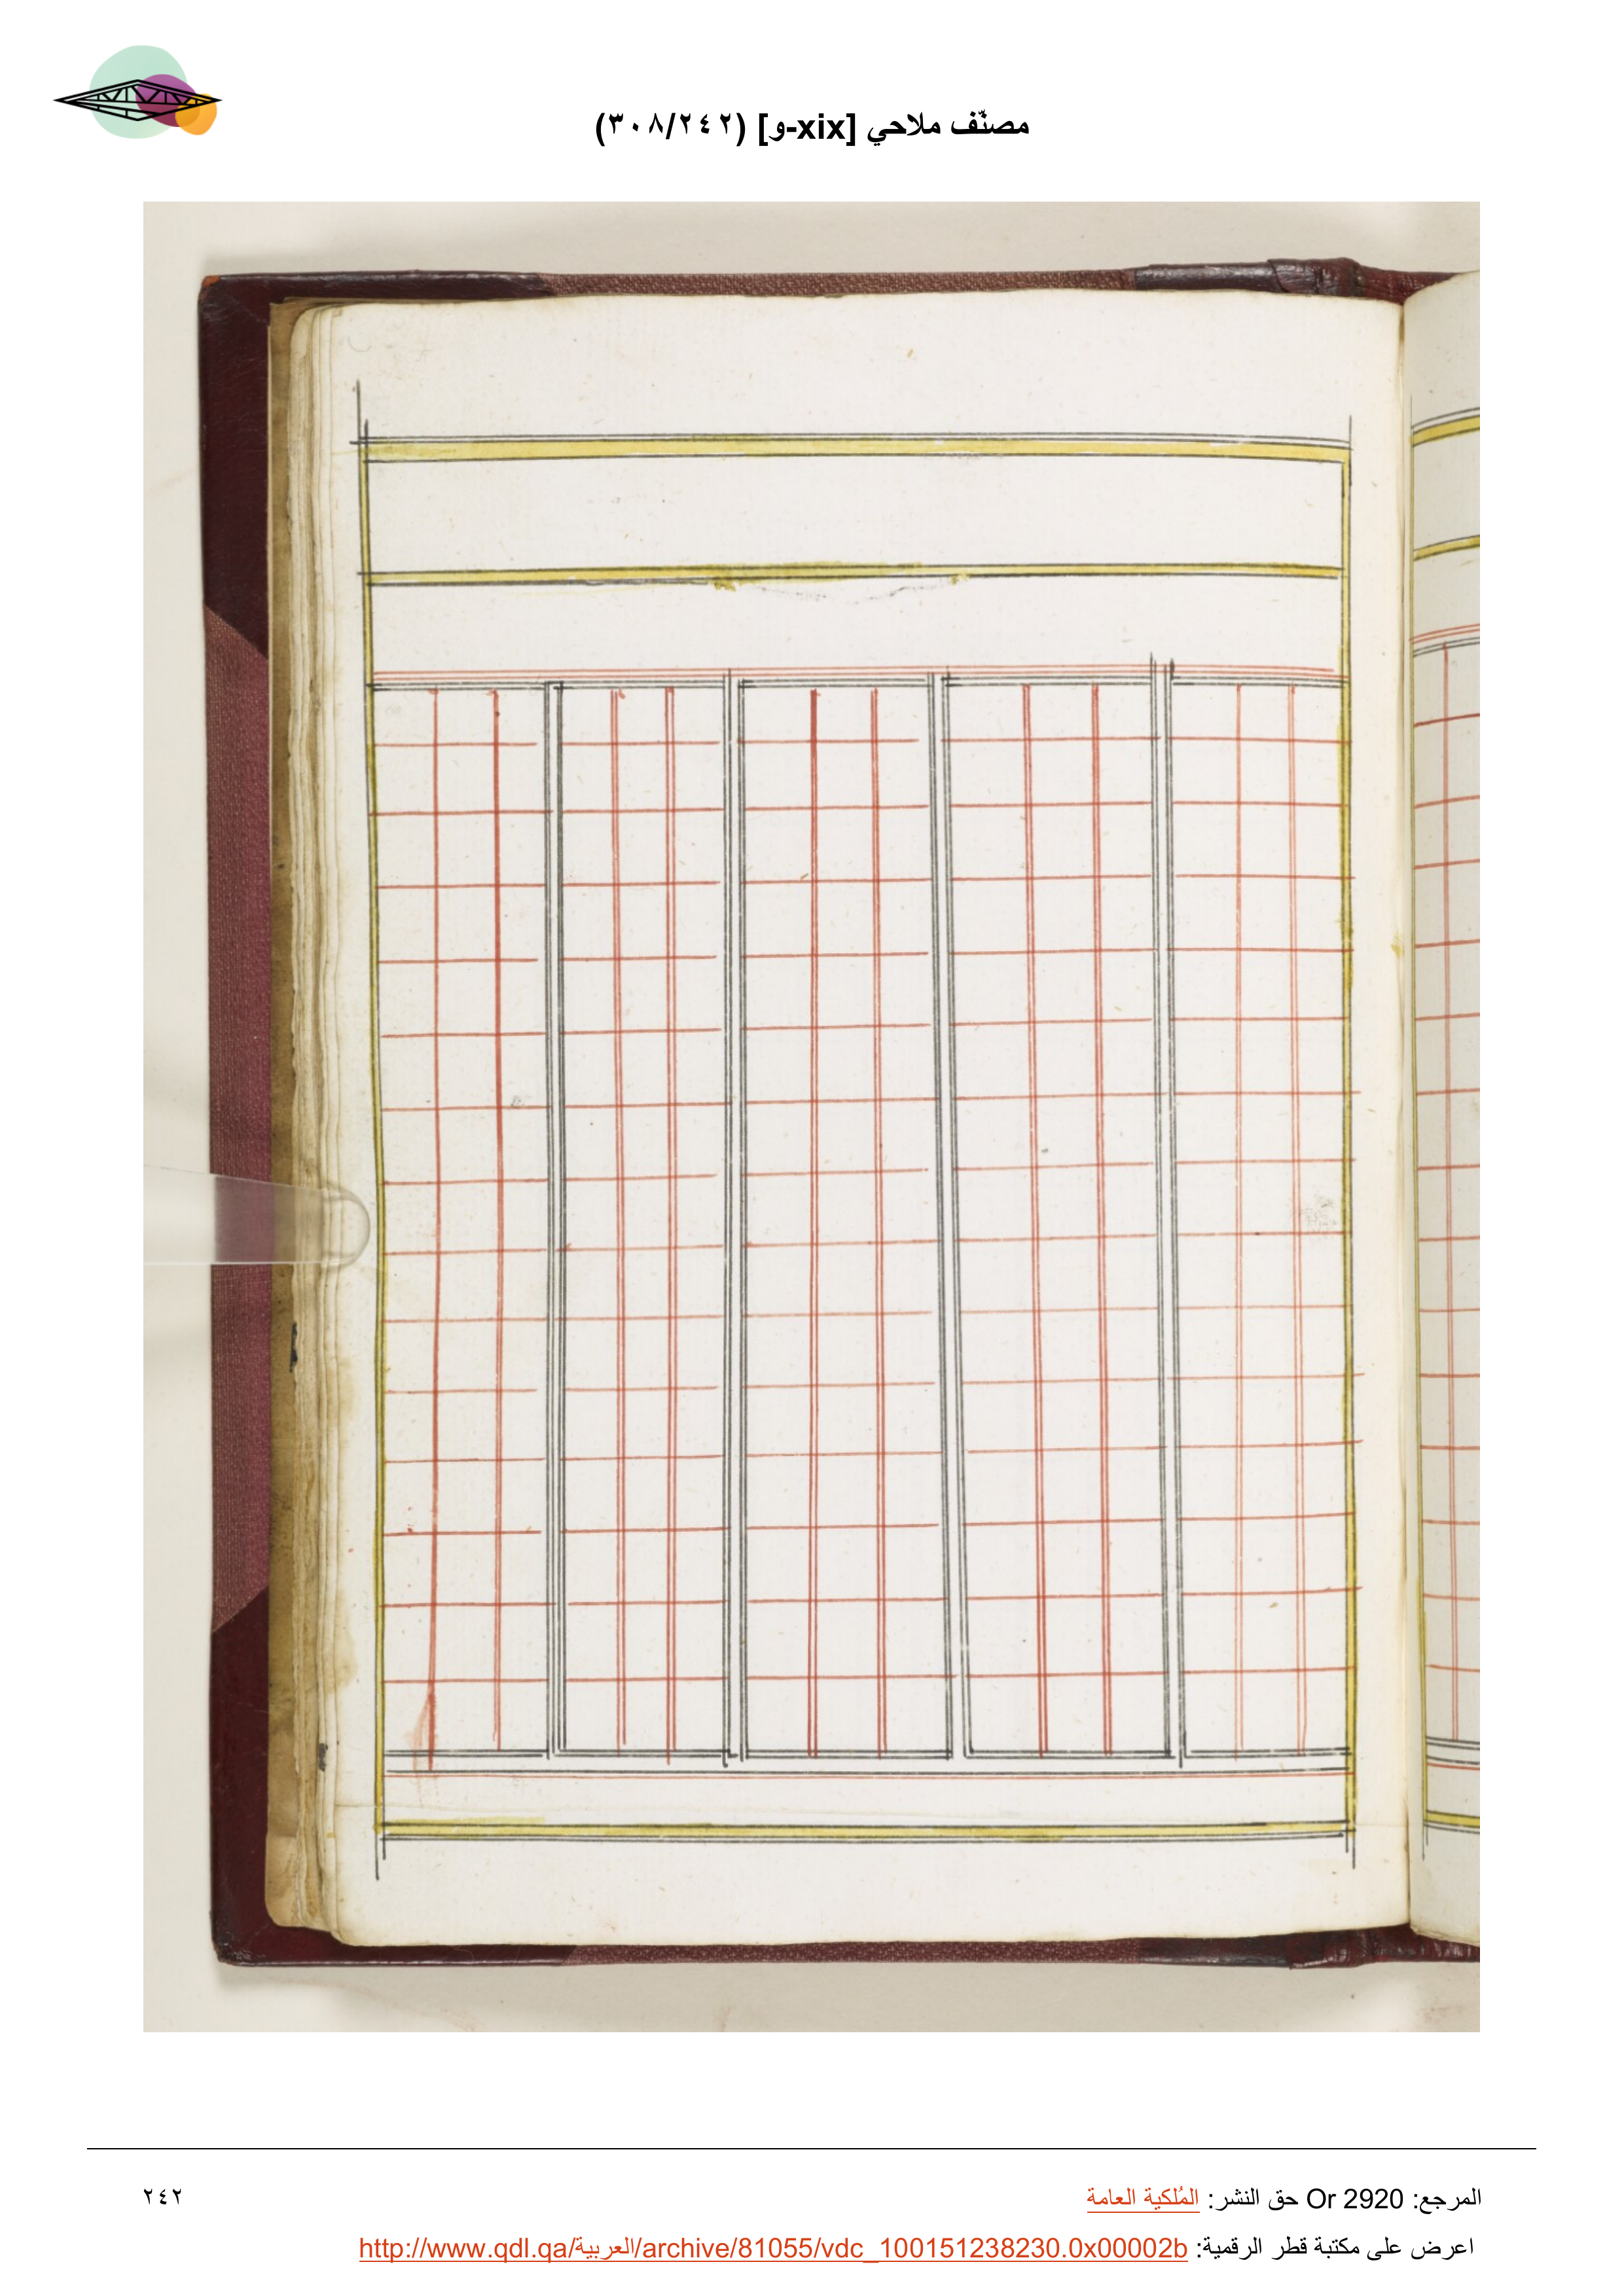 مصنّف ملاحي [xix-و] (٣٠٨/٢٤٢)
المرجع: Or 2920 حق النشر: المُلكية العامة
٢٤٢
اعرض على مكتبة قطر الرقمية: http://www.qdl.qa/العربية/archive/81055/vdc_100151238230.0x00002b